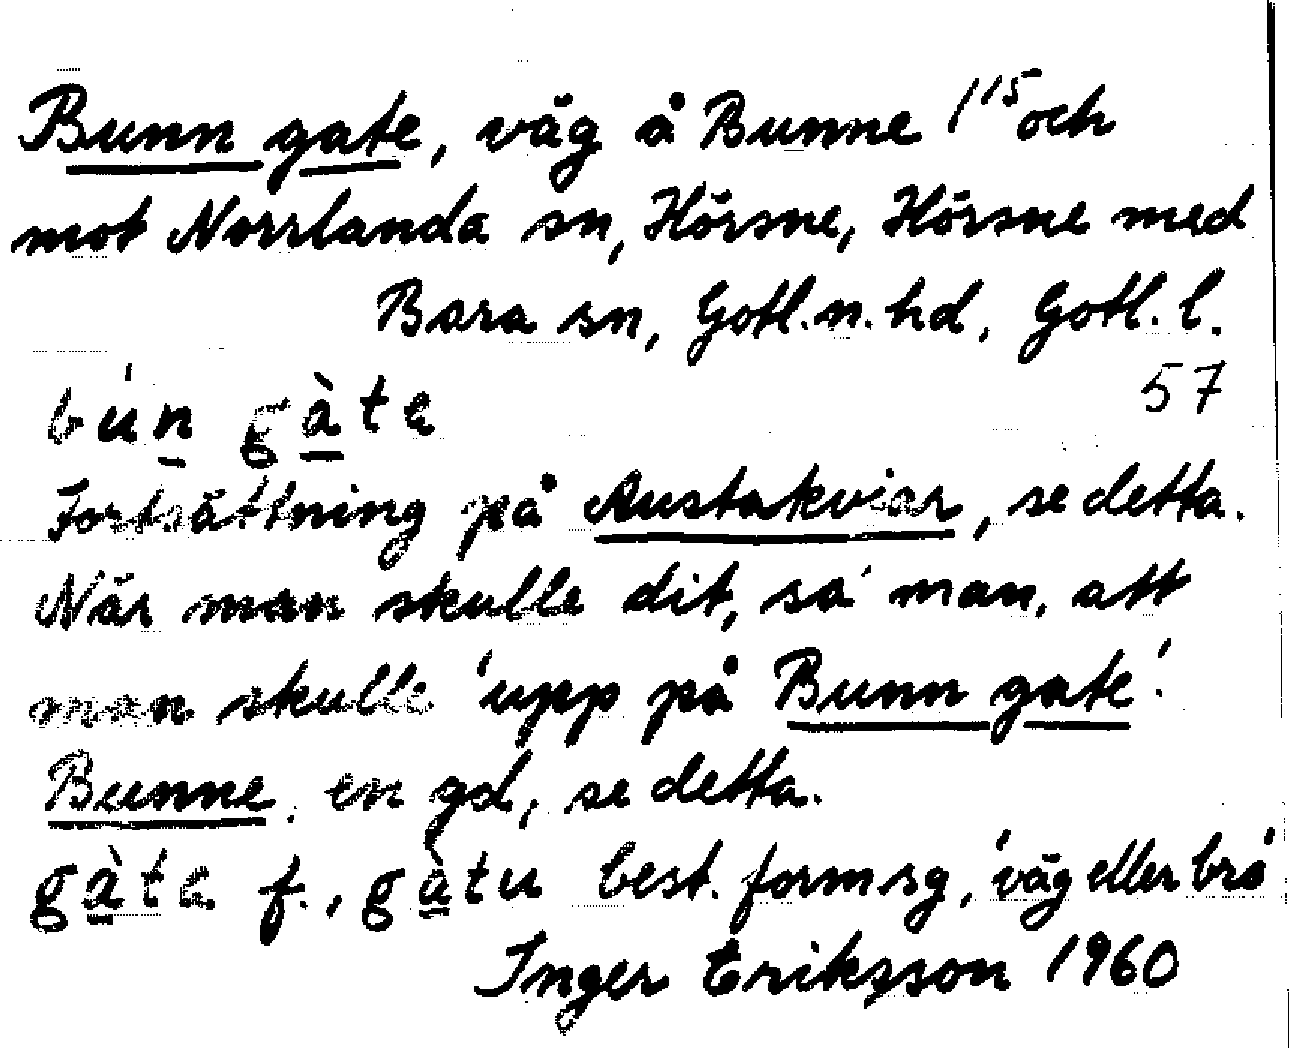 Bunn gate, väg å Bunne 1¹⁵ och
mot Norrlanda sn, Hörsne, Hörsne med
Bara sn, Gotl. n. hd, Gotl. l.
57
bún gàta
Fortsättning på Austakviar, se detta.
När man skulle dit, sa man, att
man skulle 'upp på Bunn gate'.
Bunne, en gd, se detta.
gàta f., gàtu best. form sg, 'väg eller bro'
Inger Eriksson 1960